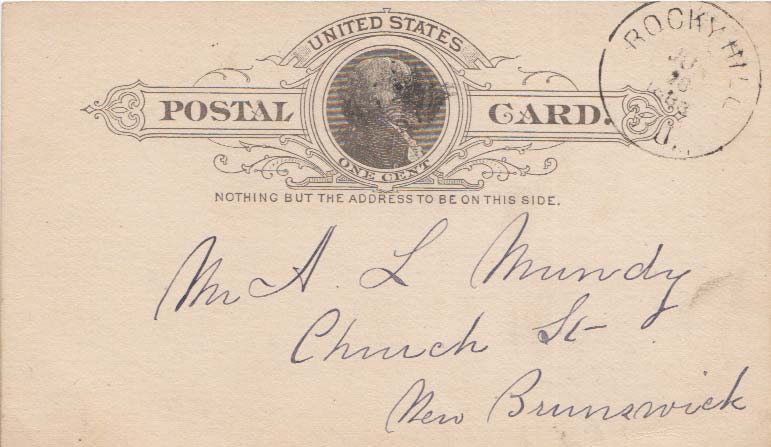 UNITED STATES
POSTAL CARD.
ONE CENT
NOTHING BUT THE ADDRESS TO BE ON THIS SIDE.
ROCKY HILL
Mr A. L Mundy
Church St
New Brunswick